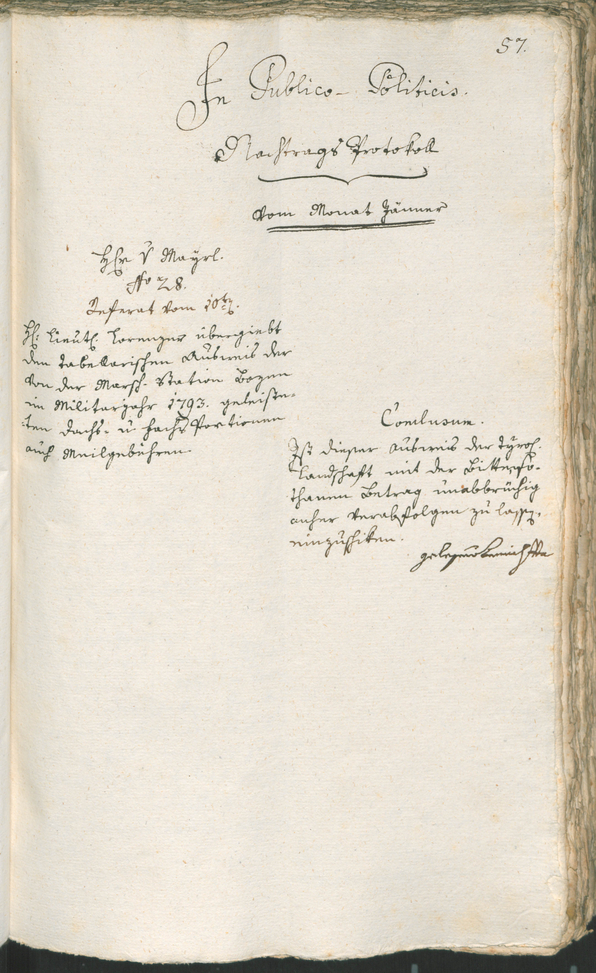 57.
In Publico-Politicis.
Nachtrags Protokoll
vom Monat Jänner
Hr v Mayrl.
No 28.
Referat vom 10t
H: Lieut: Lorenzer übergiebt
den tabellarischen Ausweis der
von der Marsch-Station Bozen
im Militarjahr 1793. geleiste-
ten Dach- u: Portionen
auch Meilgebühren
Conclusum.
Ist dieser Ausweis der Tyrol.
Landschaft mit der Bitte so-
thanen Betrag unabbrüchig
anher verabfolgen zu lassen
einzuschiken.